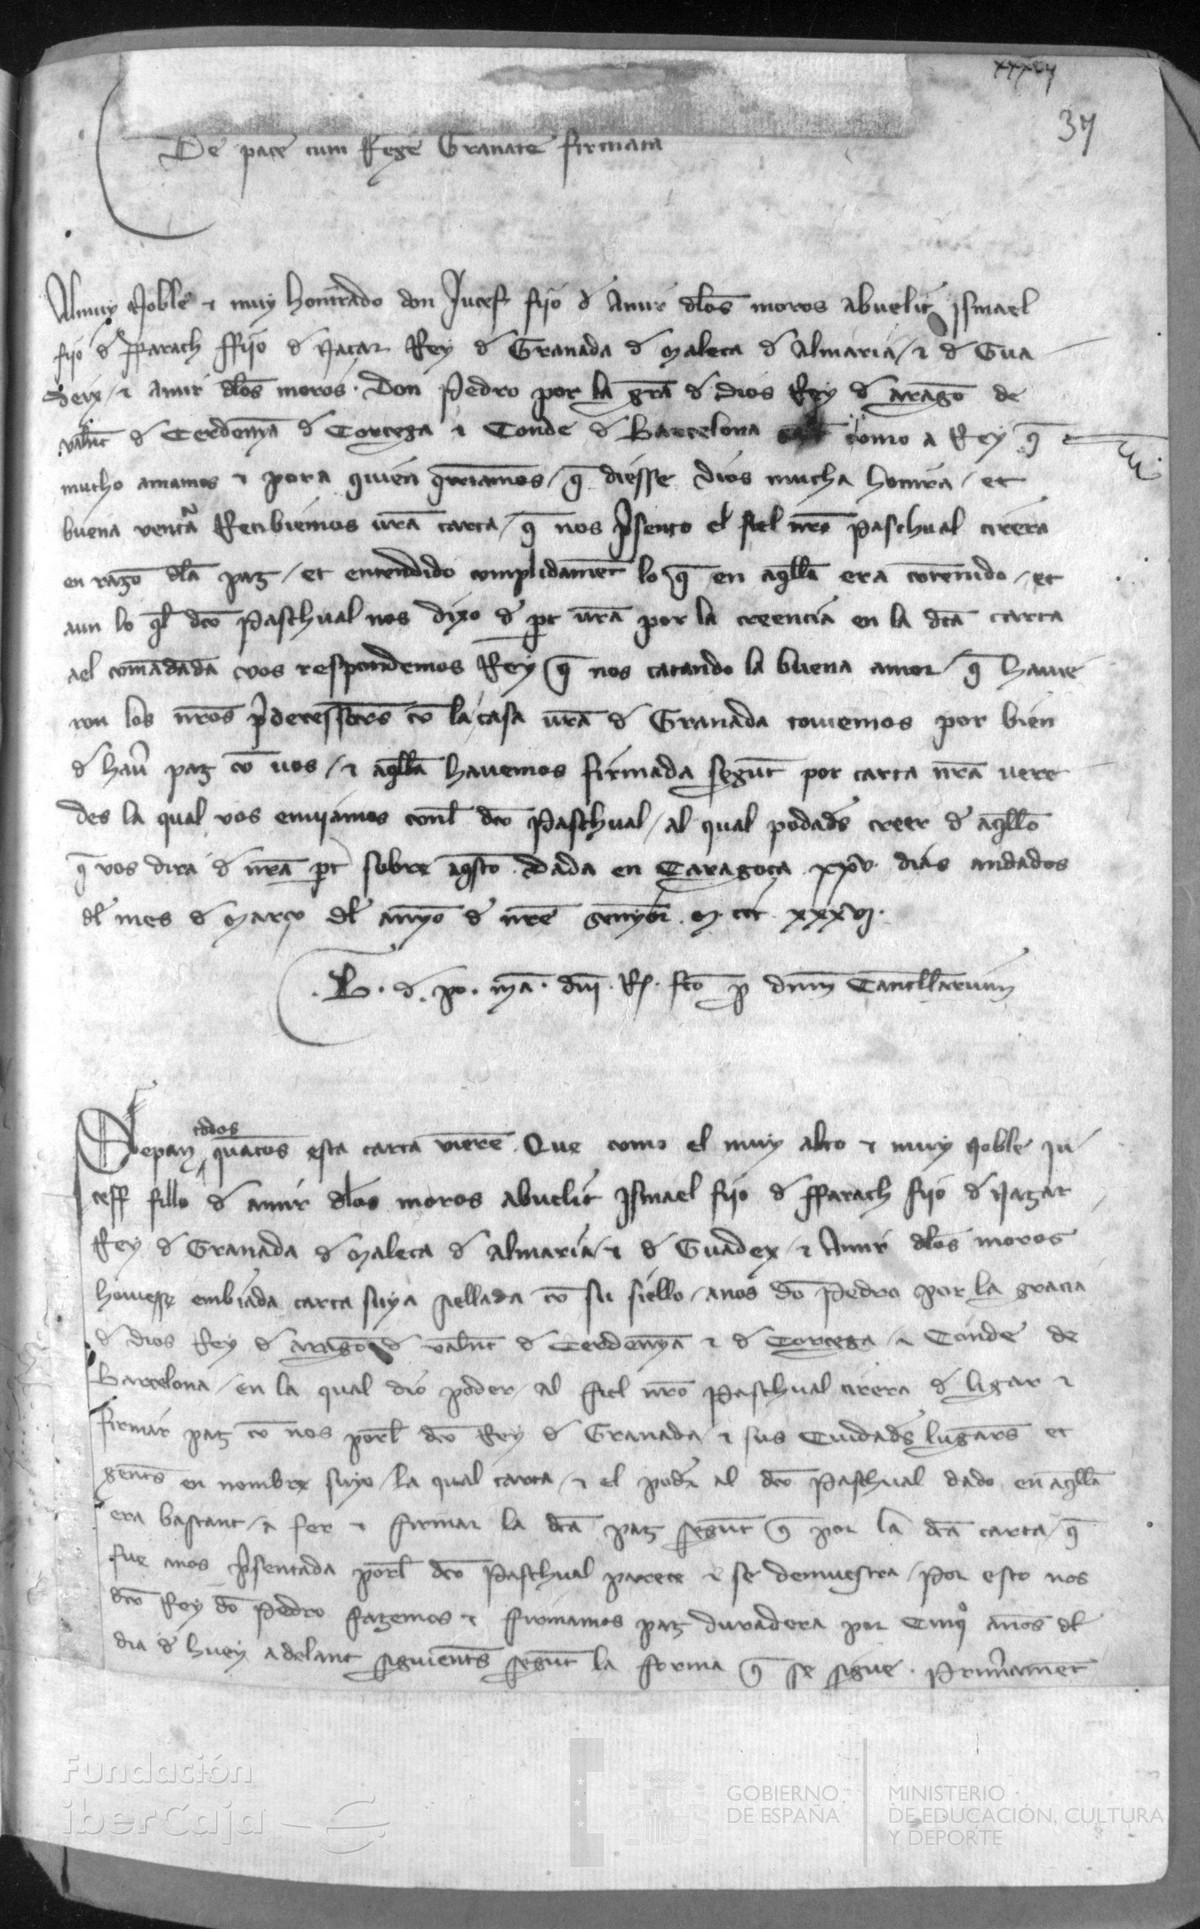 xxxvij
37
De pace cum Rege Granate firmata
Al muy Noble ⁊ muy honrrado don Juceff fijo d Amir dlos moros Abuelit Ismael
fijo d Farach ffijo d Naçar Rey d Granada d Maleca d Almaria / ⁊ d Gua
deix / ⁊ amir dlos moros. Don Pedro por la gra d Dios Rey d arago de
valent d Cerdenya d Corcega ⁊ Conde d Barcelona como a Rey q
mucho amamos ⁊ pora quien querriamos / q diesse Dios mucha honrra / et
buena ventura Recibiemos vra carta / q nos psento el fiel nro Paschual cirera
en razo dla paz / et entendido complidament lo q en aqlla era contenido / et
aun lo ql dco Paschual nos dixo de pt vra por la creencia en la dca carta
a el comadada vos respondemos Rey q nos catando la buena amor / q haue
ron los nros pdecessores co la casa vra d Granada touiemos por bien
d hau paz co vos / ⁊ aqlla hauemos firmada segunt por carta nra vere
des la qual vos enuiamos conl dco Paschual / al qual podades creer de aqllo
q vos dira d nra pt sobre aqsto. Dada en Caragoça xxv dias andados
dl mes d março dl anyo de nre senyor M ccc xxxvj.
B. d. po. ma. dni. R. fco p dnm Cancellarium
todos
Sepan quatos esta carta viere. Que como el muy alto ⁊ muy Noble Ju
ceff fillo d amir dlos moros abuelit Ismael fijo d ffarach fijo d Naçar
Rey d Granada d Maleca d Almaria / ⁊ d Guadex / ⁊ Amir dlos moros
houiesse embiada carta suya siellada co su siello / a nos do Pedro por la gracia
d Dios Rey d arago d valent d Cerdenya ⁊ d Corcega / ⁊ Conde de
Barcelona / en la qual dio poder / al fiel nro Paschual cirera d ligar ⁊
firmar paz co nos porl dco Rey d Granada / ⁊ sus Ciudades lugares et
gentes en nombre suyo / la qual carta / ⁊ el poder al dco Paschual dado en aqlla
era bastant / a fer ⁊ firmar la dca paz segunt q por la dca carta / q
fue a nos psentada porl dco Paschual parece ⁊ se demuestra / Por esto nos
dco Rey do Pedro fazemos ⁊ firmamos paz duradera por Cinq anos dl
dia d huey adelant siguientes segunt la forma q se sigue. Primament
Fundación
iberCaja
GOBIERNO
DE ESPAÑA
MINISTERIO
DE EDUCACIÓN, CULTURA
Y DEPORTE